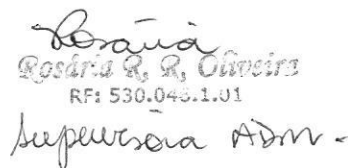 Rosária
Rosária R. R. Oliveira
RF: 530.046.1.01
Supervisora Adm.